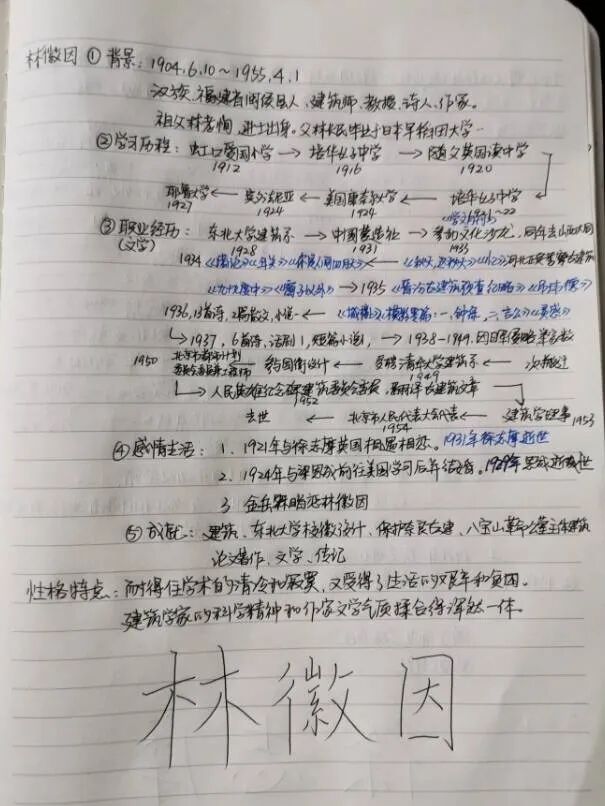 林徽因 ① 背景：1904.6.10～1955.4.1
汉族、福建省闽侯县人、建筑师、教授、诗人、作家。
祖父林孝恂，进士出身。父林长民毕业于日本早稻田大学.
② 学习历程：虹口爱国小学 → 培华女子中学 → 随父英国读中学
1912 1916 1920
耶鲁大学 ← 宾夕法尼亚 ← 美国康奈尔大学 ← 培华女子中学
1927 1924 1924 21~22
③ 职业经历：东北大学建筑系 → 中国营造社 →
(文学) 1928 1931 1933
1934 《年关》《你是人间四月天》←《秋天，这秋天》《忆》
《九十九度中》《窗子以外》→ 1935
1936，诗，2篇散文，小说 ←《城楼上》，模影零篇：一、钟绿，二、吉公
↳ 1937，6首诗，话剧1，短篇小说1， → 1938-1949.因日军侵略
1950 北京市都市计划 ← 参与国徽设计 ← 受聘清华大学建筑系 ←
1949
↳ 人民英雄纪念碑建筑委员会委员，
1952
去世 ← 北京市人民代表大会代表 ← 建筑学会理事 1953
1954
④ 感情生活：1. 1921年与徐志摩英国相遇相恋。1931年徐志摩逝世
2. 1924年与梁思成前往美国学习后并结婚。
3. 金岳霖暗恋林徽因
⑤ 成就：建筑、东北大学校徽设计、保护京区古建、八宝山革命公墓主体建筑
论文著作、文学、传记
性格特点：耐得住学术的清冷和寂寞，又受得了生活的艰辛和贫困。
建筑学家的科学精神和作家文学气质揉合得浑然一体。
林徽因